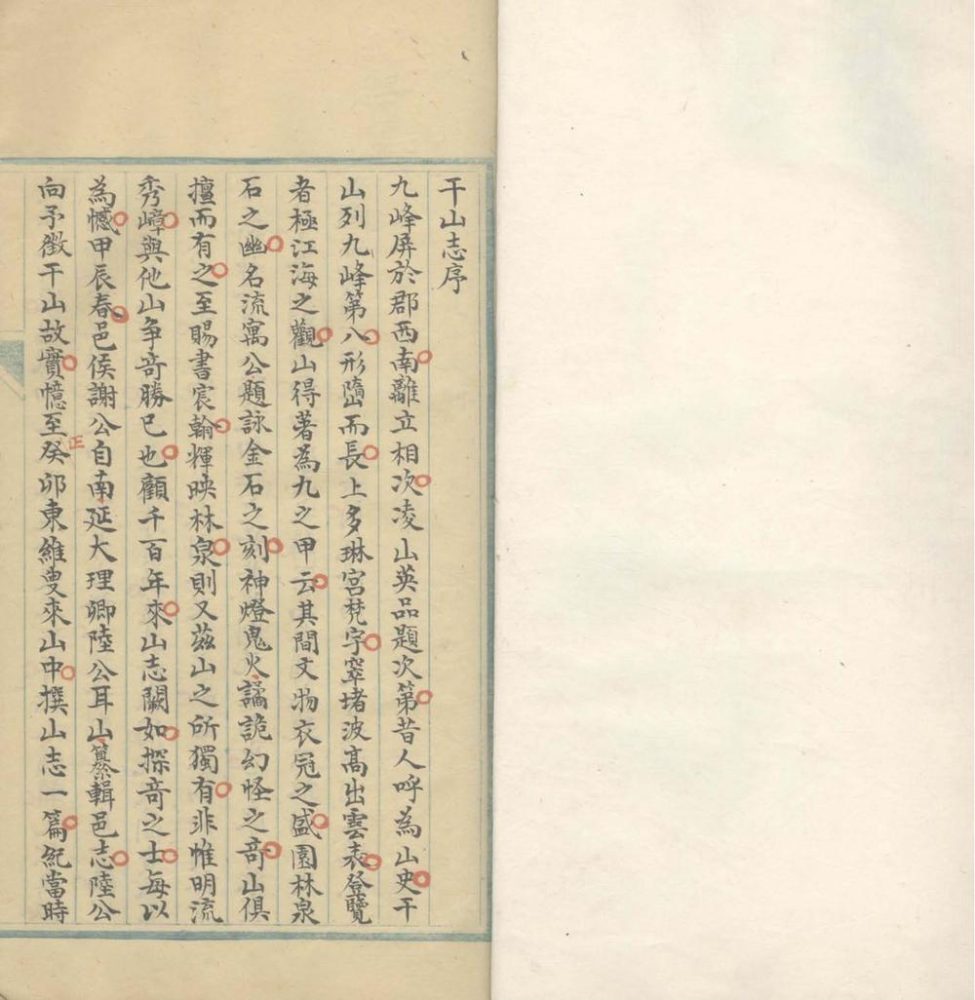 干山志序
九峰屏於郡西南離立相次凌山英品題次第昔人呼為山史干
山列九峰第八形隋而長上多琳宮梵宇窣堵波高出雲表登覽
者極江海之觀山得著為九之甲云其間文物衣冠之盛園林泉
石之幽名流寓公題詠金石之刻神燈鬼火譎詭幻怪之奇山俱
擅而有之至賜書宸翰輝映林泉則又茲山之所獨有非惟明流
秀嶂與他山争奇勝已也顧千百年來山志闕如探奇之士每以
為憾甲辰春邑侯謝公自南延大理卿陸公耳山纂輯邑志陸公
向予徵干山故實憶至正癸卯東維叟來山中撰山志一篇紀當時